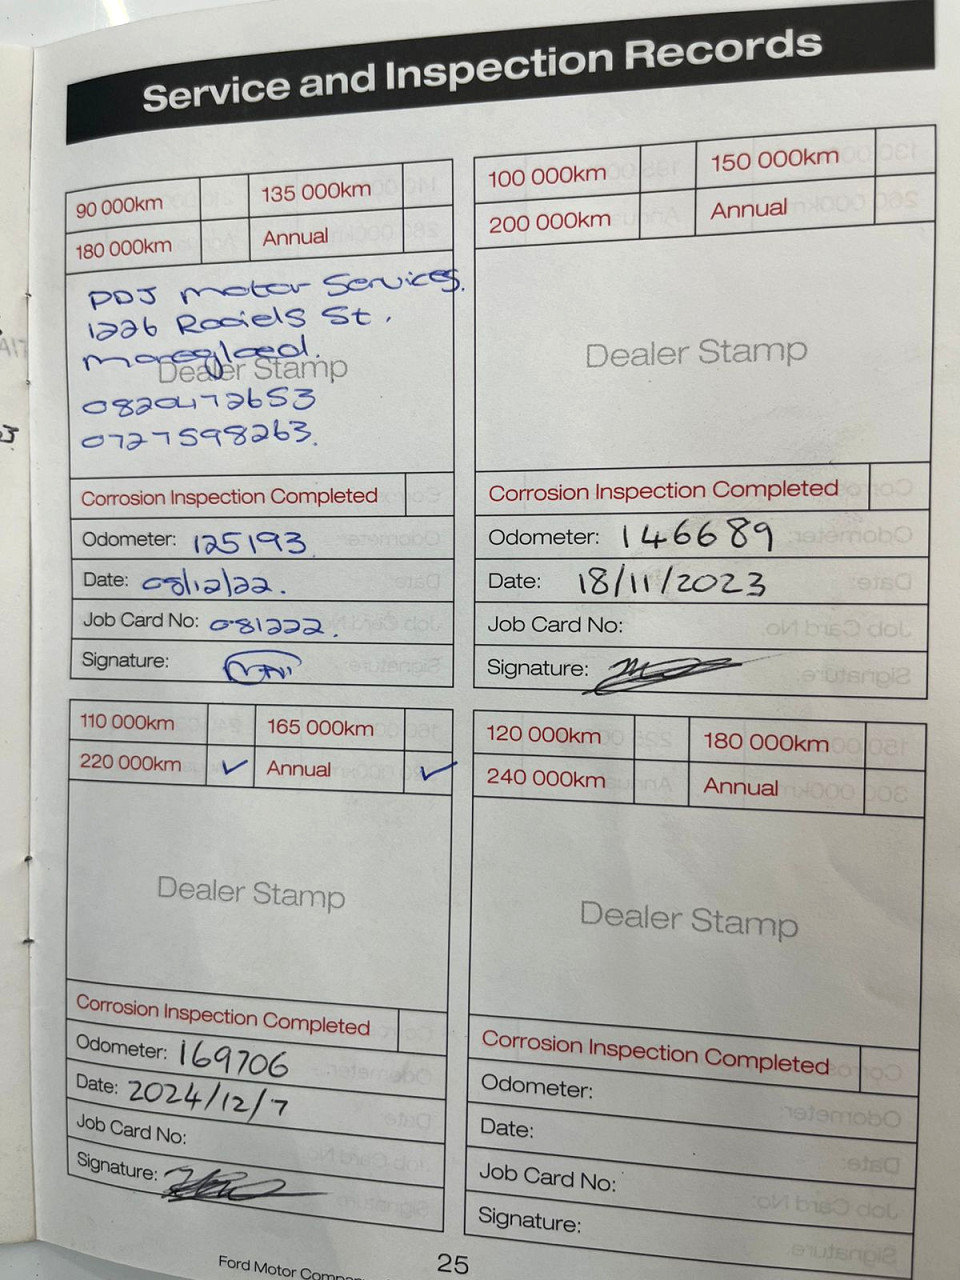 Service and Inspection Records
90 000km 135 000km
180 000km Annual
PDJ Motor Services.
1226 Raciels St.
Dealer Stamp
0820472653
0727598263.
Corrosion Inspection Completed
Odometer: 125193
Date: 08/12/22.
Job Card No: 081222.
Signature:
100 000km 150 000km
200 000km Annual
Dealer Stamp
Corrosion Inspection Completed
Odometer: 146689
Date: 18/11/2023
Job Card No:
Signature:
110 000km 165 000km
220 000km ✓ Annual ✓
Dealer Stamp
Corrosion Inspection Completed
Odometer: 169706
Date: 2024/12/7
Job Card No:
Signature:
120 000km 180 000km
240 000km Annual
Dealer Stamp
Corrosion Inspection Completed
Odometer:
Date:
Job Card No:
Signature:
Ford Motor
25